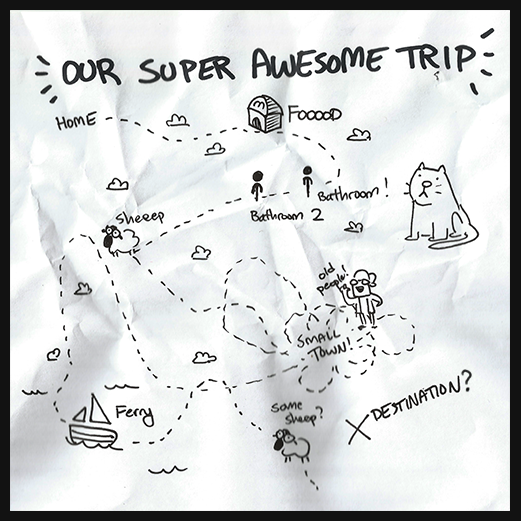 OUR SUPER AWESOME TRIP
HOME
FOOOOD
Bathroom!
Bathroom 2
Sheeep
old
people!
SMALL
TOWN!
Ferry
Same
Sheep?
DESTINATION?